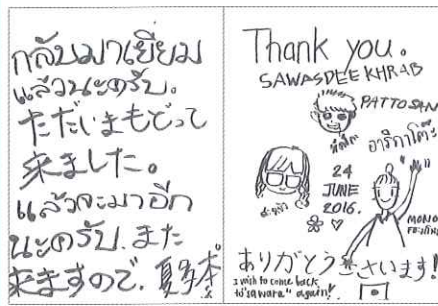 กลับมาเยี่ยม
แล้วนะครับ.
ただいまもどって
来ました。
แล้วจะมาอีก
นะครับ. また
来ますので.
Thank you.
SAWASDEE KHRAB
PATTO SAN
อาริกาโต๊ะ
24
JUNE
2016.
MONO
ありがとうございます!
I wish to come back
to "sawara" again!